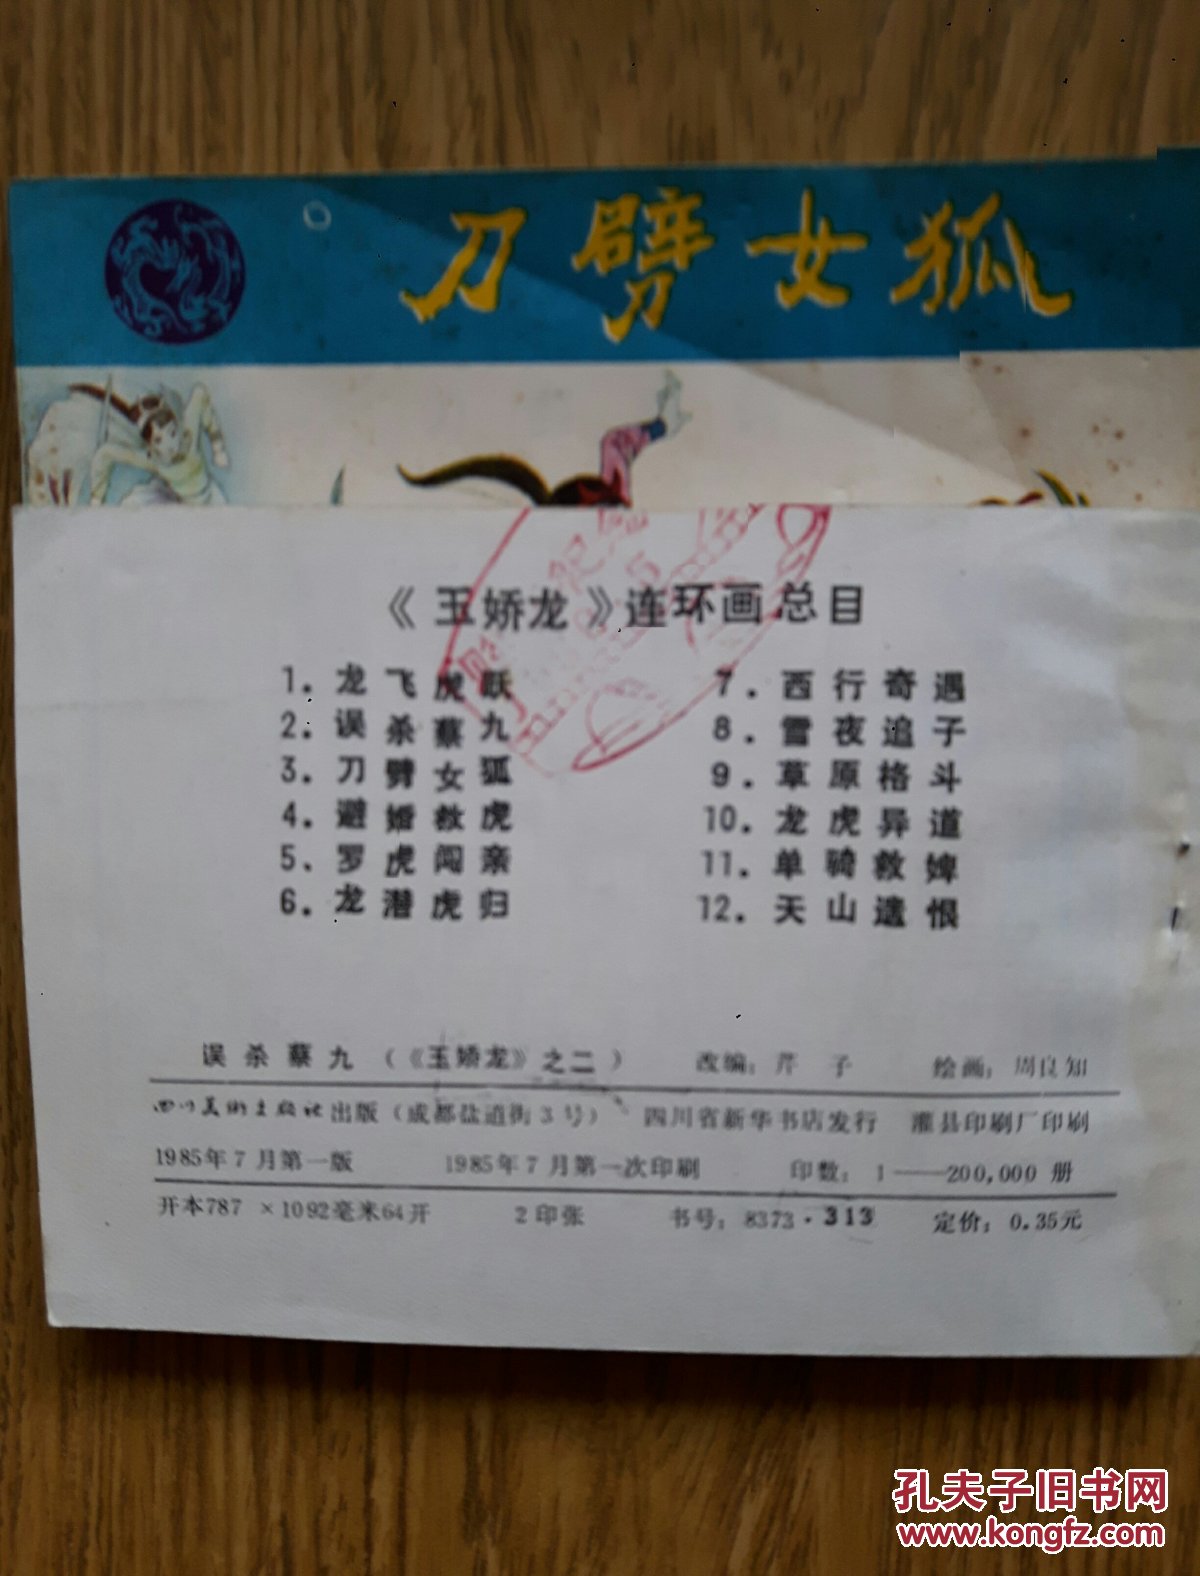 刀劈女狐
《玉娇龙》连环画总目
1.龙飞虎跃
2.误杀蔡九
3.刀劈女狐
4.避婚救虎
5.罗虎闯亲
6.龙潜虎归
7.西行奇遇
8.雪夜追子
9.草原格斗
10.龙虎异道
11.单骑救婢
12.天山遗恨
误杀蔡九(《玉娇龙》之二) 改编:芹子 绘画:周良知
四川美术出版社出版(成都盐道街3号) 四川省新华书店发行 灌县印刷厂印刷
1985年7月第一版 1985年7月第一次印刷 印数:1——200,000册
开本787×1092毫米64开 2印张 书号:8373·313 定价:0.35元
孔夫子旧书网
www.kongfz.com